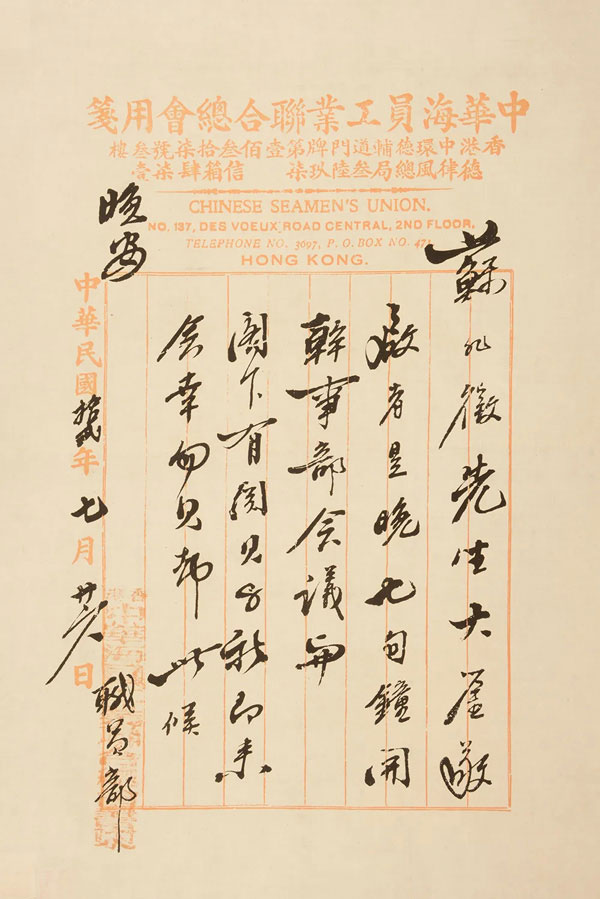 中華海員工業聯合總會用箋
香港中環德輔道門牌第壹佰叁拾柒號叁樓
德律風總局叁陸玖柒 信箱肆柒壹
CHINESE SEAMEN'S UNION.
NO. 137, DES VOEUX ROAD CENTRAL, 2ND FLOOR,
TELEPHONE NO. 3697, P. O. BOX NO. 471
HONG KONG.
蘇兆徵先生大鑒敬
啟者是晚七句鐘開
幹事部會議
閣下有關見字祈即来
會幸勿見却此候
晚安
中華民國拾弍年七月廿日
職員部